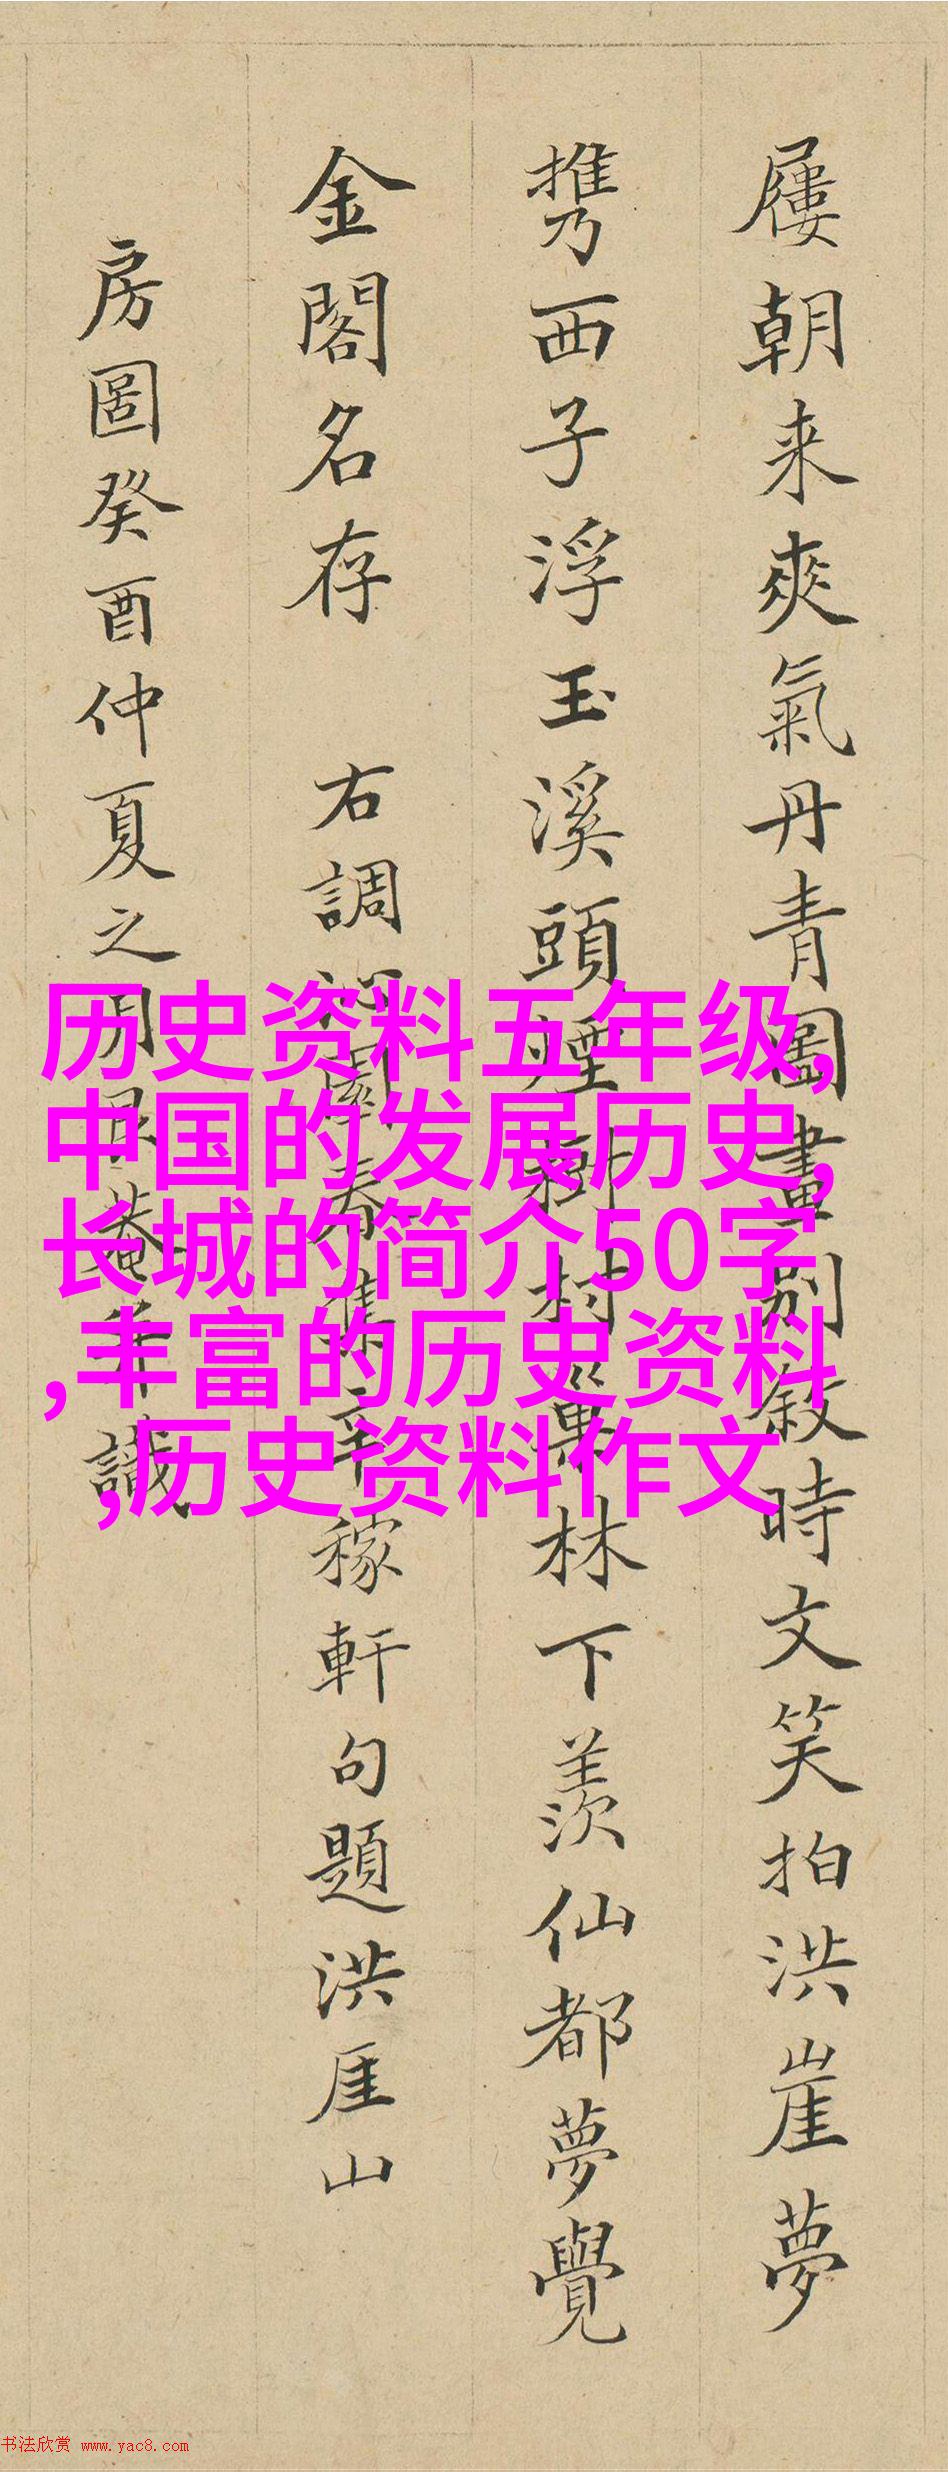 屨朝来爽氣丹青圖畫別敘時文笑拍洪崖夢
携西子浮玉溪頭煙樹村巢林下羨仙都夢覺
金閣名存 右調沁園春集辛稼軒句題洪厓山
房圖癸酉仲夏之月艮菴并識
历史资料五年级,
中国的发展历史,
长城的简介50字
,丰富的历史资料
,历史资料作文
书法欣赏 www.yac8.com